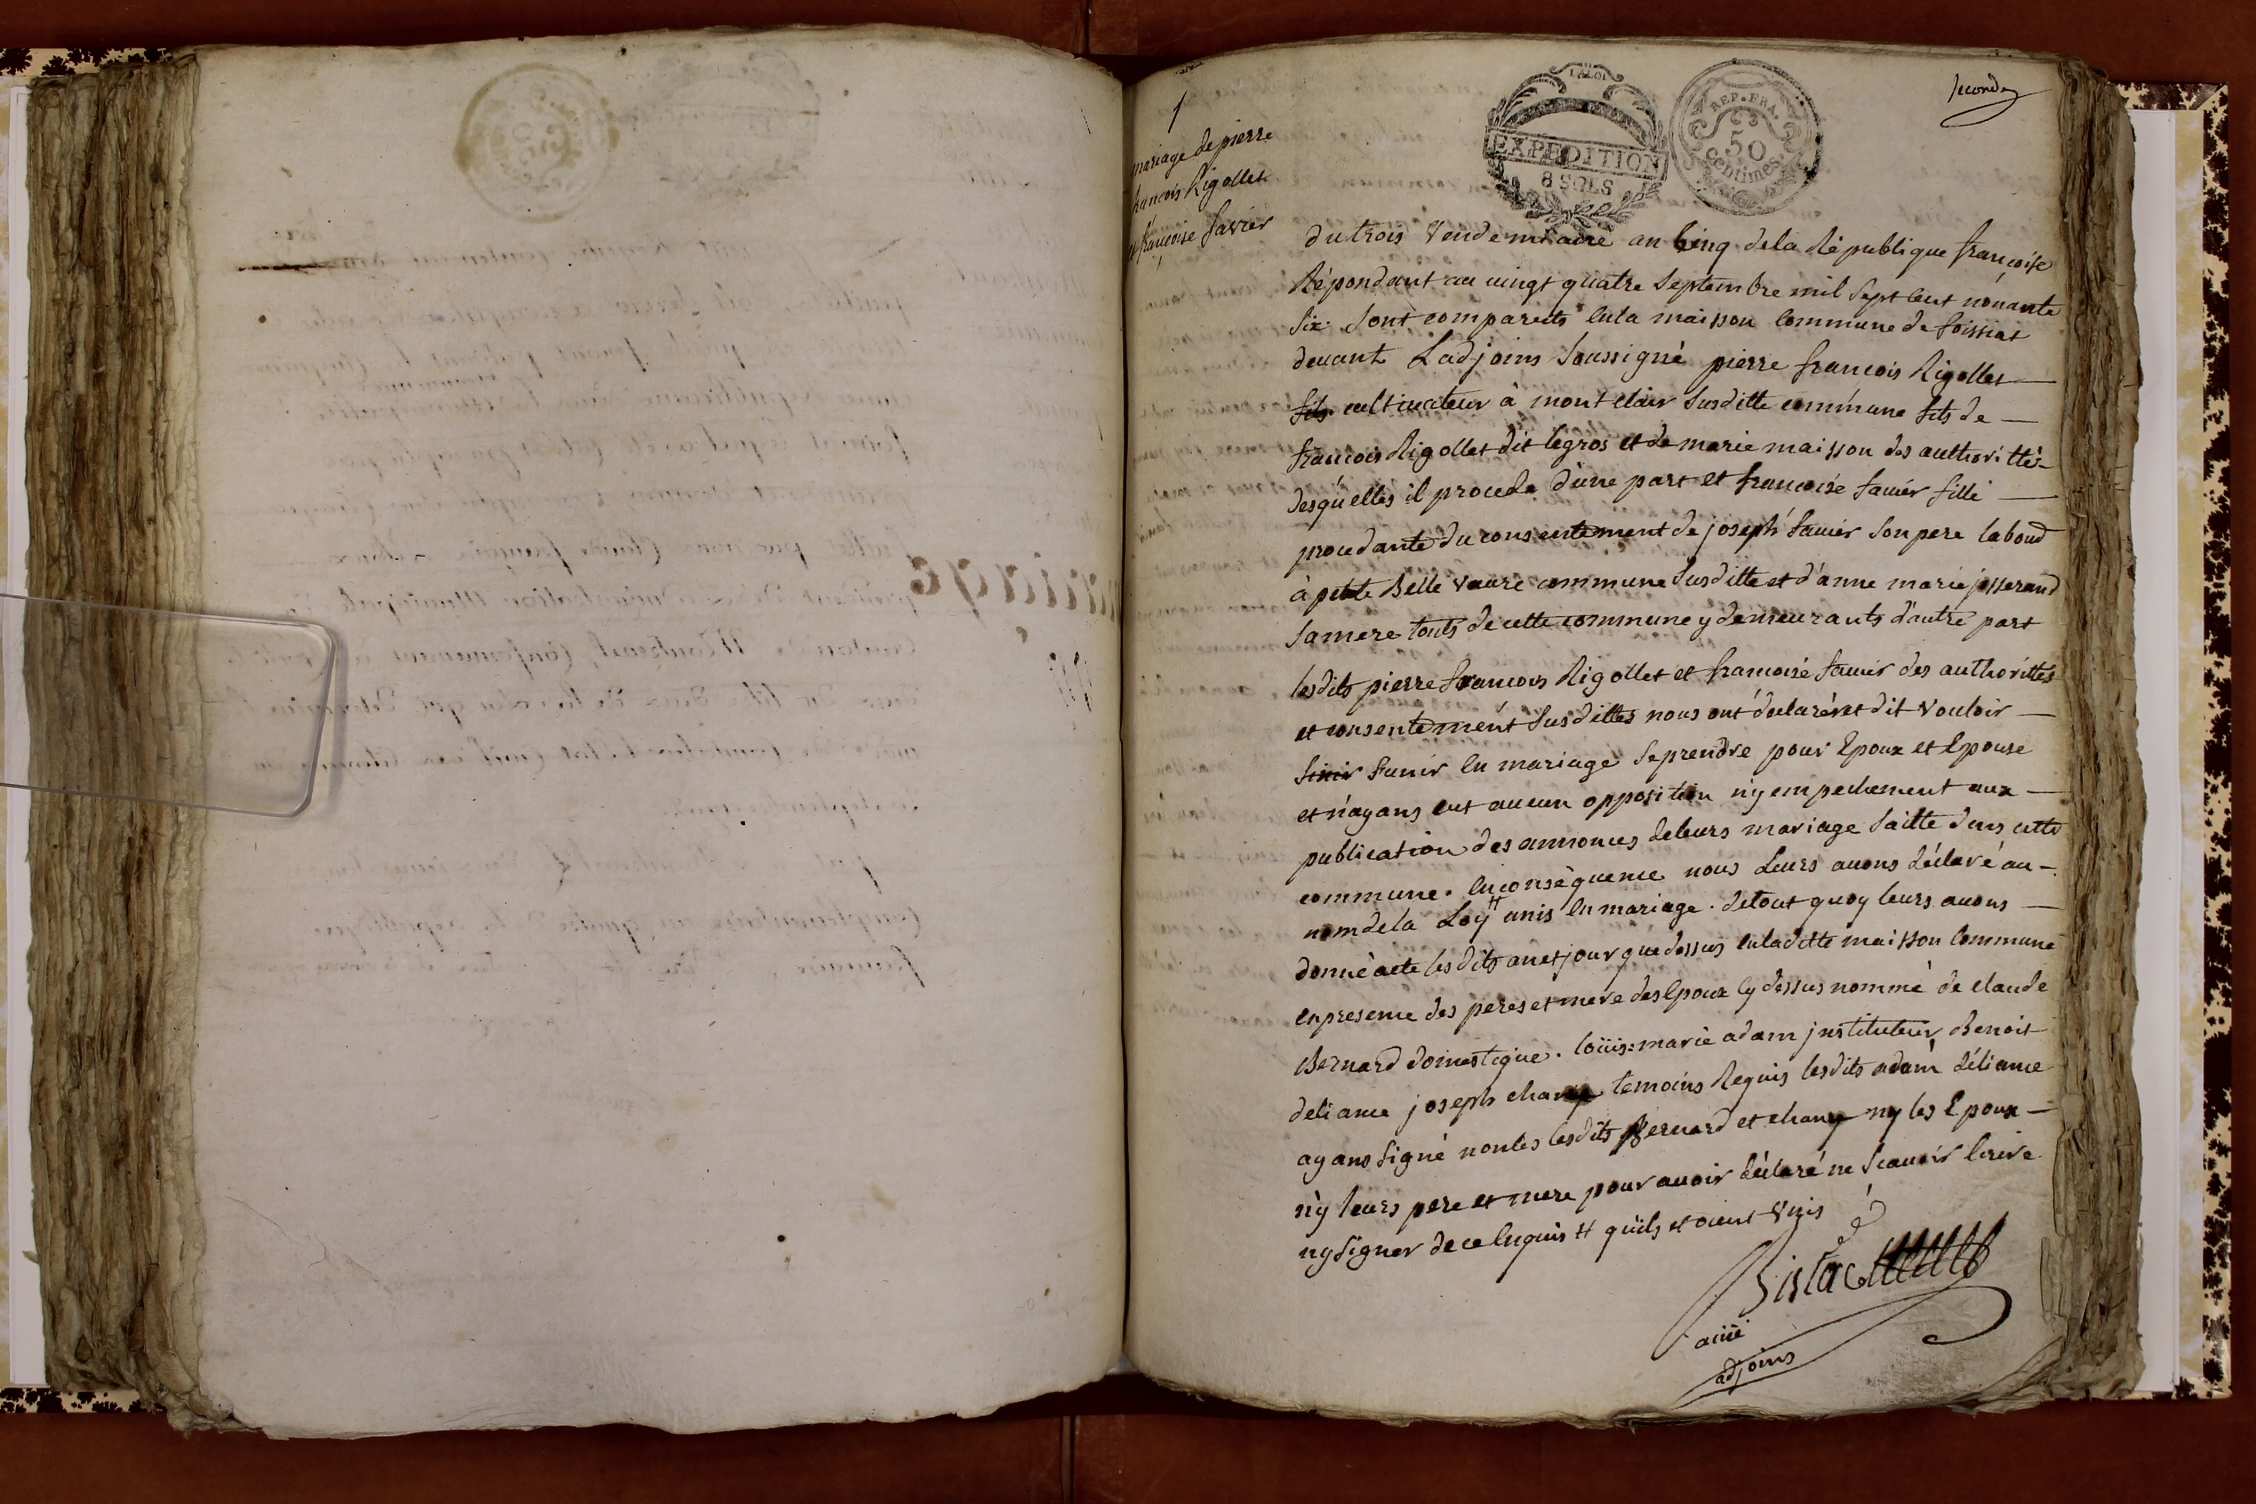 1
mariage de pierre
francois Rigollet
et françoise Favier
LA LOI
EXPEDITION
8 SOLS
REP. FRA.
50
centimes.
second
du trois vendemiaire an Cinq de la République françoise
Répondant au vingt quatre Septembre mil Sept Cent nonante
Six. Sont comparents en la maisson Commune de foissiat
devant Ladjoins Soussigné pierre francois Rigollet
fils cultivateur à mont clair Susditte commune fils de
francois Rigollet dit legros et de marie maisson des authorittés
desquelles il procede d'une part et francoise favier fille
procedante du consentement de joseph favier Son pere laboud
à petite Belle vavre commune Susditte et d'anne marie josserand
Sa mere touts de cette commune y demeurants d'autre part
lesdits pierre francois Rigollet et francoise favier des authorittés
et consentement Susdittes nous ont déclarés et dit vouloir
S'unir en mariage Se prendre pour Epoux et Epouse
et n'ayans eut aucun opposition n'y empechement aux
publication des annonces de leurs mariage faitte dans cette
commune. En conséquence nous Leurs avons déclaré au
nom de la Loy # unis En mariage. de tout quoy leurs avons
donné acte lesdits an et jour que dessus en ladite maisson Commune
en presence des peres et mere des Epoux Cy dessus nommé de claude
Bernard domestique. loüis=marie adam jnstituteur, Benoit
deliance joseph chanel temoins Requis lesdits adam déliance
ayans signé non les lesdits Bernard et chanel ny les Epoux
n'y leurs pere et mere pour avoir déclaré ne Scavoir Ecrire
ny signer de ce Enquis # quils etoient Unis
ainé
adjoins